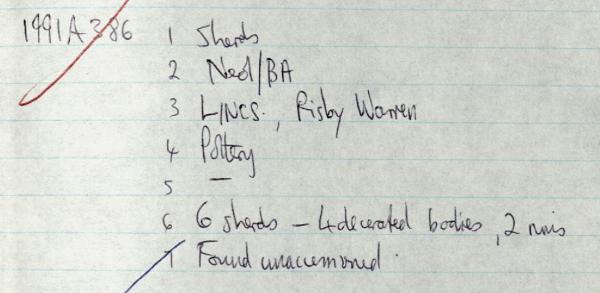 1991A386 1 Sherds
2 Neol/BA
3 LINCS., Risby Warren
4 Pottery
5 —
6 6 sherds – 4 decorated bodies, 2 rims
7 Found unaccessioned.